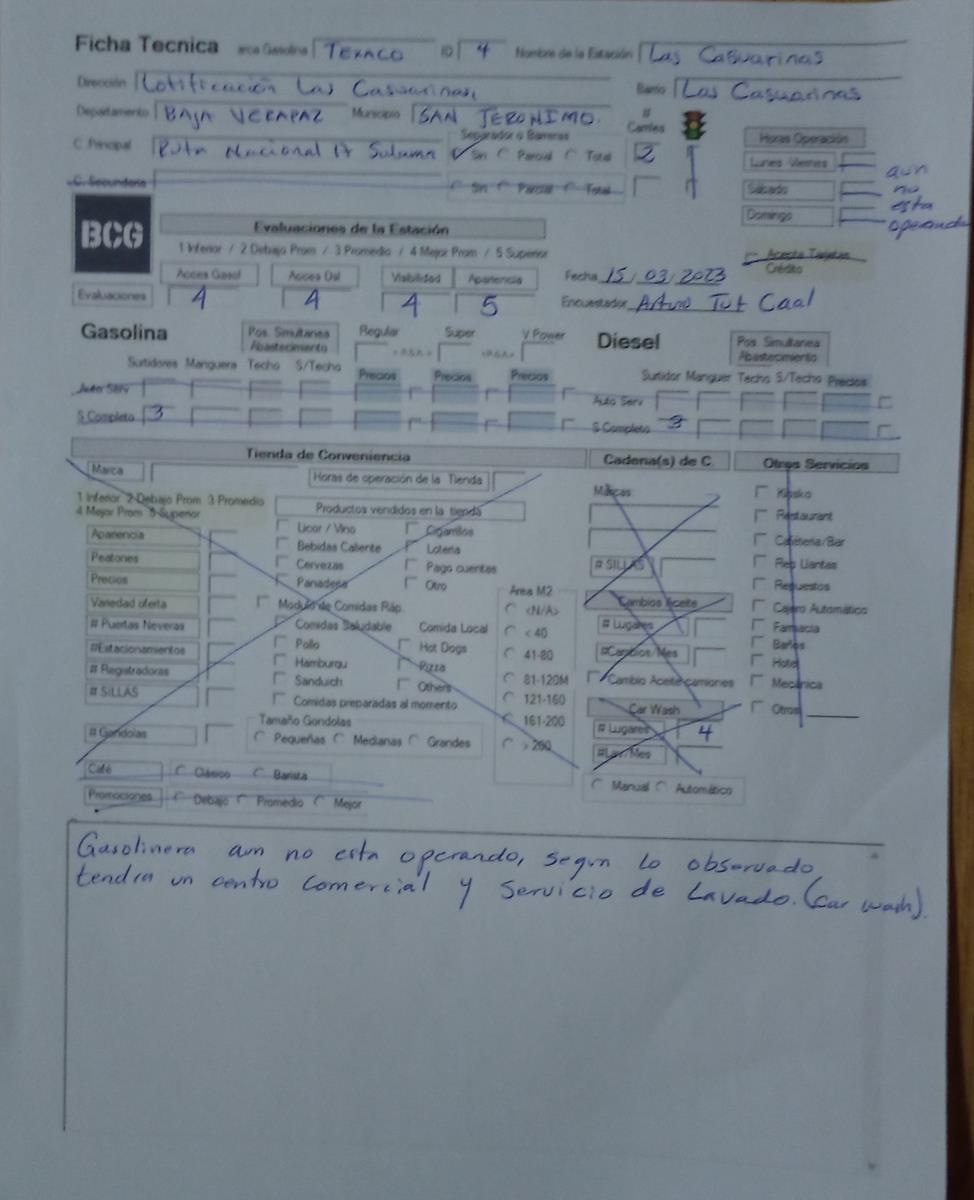 Ficha Tecnica arca Gasolina TEXACO ID 4 Nombre de la Estación Las Casuarinas
Dirección Lotificación Las Casuarinas, Barrio Las Casuarinas
Departamento BAJA VERAPAZ Municipio SAN JERONIMO. # Carriles
C. Principal Ruta Nacional 17 Separador o Barreras Sin Parcial Total 2
C. Secundaria Sin Parcial Total
Horas Operación
Lunes Viernes aun
Sábado no
Domingo esta
operando
BCG
Evaluaciones de la Estación
1 Inferior / 2 Debajo Prom / 3 Promedio / 4 Mejor Prom / 5 Superior
Acepta Tarjetas
Crédito
Acces Gasol Acces Dsl Visibilidad Apariencia Fecha 15/03/2023
Evaluaciones 4 4 4 5 Encuestador Arturo Tut Caal
Gasolina Pos. Simultanea Abastecimiento Regular Super V Power
Diesel Pos. Simultanea Abastecimiento
Surtidores Manguera Techo S/Techo Precios Precios Precios
Surtidor Manguer Techo S/Techo Precios
Auto Serv Auto Serv
S Completo 3 S Completo 3
Tienda de Conveniencia Cadena(s) de C. Otros Servicios
Marca Horas de operación de la Tienda
1 Inferior 2 Debajo Prom 3 Promedio
4 Mejor Prom 5 Superior
Productos vendidos en la tienda
Apariencia
Peatones
Precios
Variedad oferta
# Puertas Neveras
#Estacionamientos
# Registradoras
# SILLAS
# Gondolas
Licor / Vino Cigarrillos
Bebidas Caliente Loteria
Cervezas Pago cuentas
Panaderia Otro
Modulo de Comidas Ráp.
Comidas Saludable Comida Local
Pollo Hot Dogs
Hamburqu Pizza
Sanduich Others
Comidas preparadas al momento
Tamaño Gondolas
Pequeñas Medianas Grandes
Area M2
<N/A>
< 40
41-80
81-120M
121-160
161-200
> 200
Marcas
# SILLAS
Cambios Aceite
# Lugares
#Cambios/Mes
Cambio Aceite camiones
Car Wash
# Lugares 4
#Lav/Mes
Manual Automático
Kiosko
Restaurant
Cafeteria/Bar
Rep Llantas
Repuestos
Cajero Automático
Farmacia
Baños
Hotel
Mecánica
Otros
Café Clásico Barista
Promociones Debajo Promedio Mejor
Gasolinera aun no esta operando, segun lo observado
tendra un centro comercial y servicio de Lavado. (car wash).